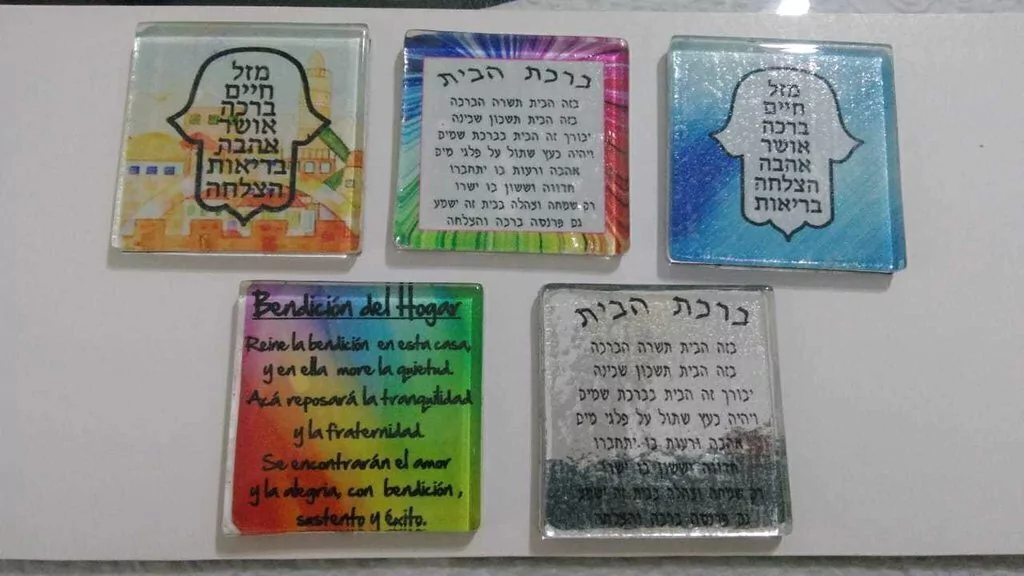 מזל
חיים
ברכה
אושר
אהבה
בריאות
הצלחה
ברכת הבית
בזה הבית תשרה הברכה
בזה הבית תשכון שכינה
יבורך זה הבית בברכת שמים
ויהיה כעץ שתול על פלגי מים
אהבה ורעות בו יתחברו
חדווה וששון בו ישרו
רק שמחה וצהלה בבית זה ישמע
גם פרנסה ברכה והצלחה
מזל
חיים
ברכה
אושר
אהבה
הצלחה
בריאות
Bendición del Hogar
Reine la bendición en esta casa,
y en ella more la quietud.
Acá reposará la tranquilidad
y la fraternidad
Se encontrarán el amor
y la alegria, con bendición,
sustento y éxito.
ברכת הבית
בזה הבית תשרה הברכה
בזה הבית תשכון שכינה
יבורך זה הבית בברכת שמים
ויהיה כעץ שתול על פלגי מים
אהבה ורעות בו יתחברו
חדווה וששון בו ישרו
רק שמחה וצהלה בבית זה ישמע
גם פרנסה ברכה והצלחה